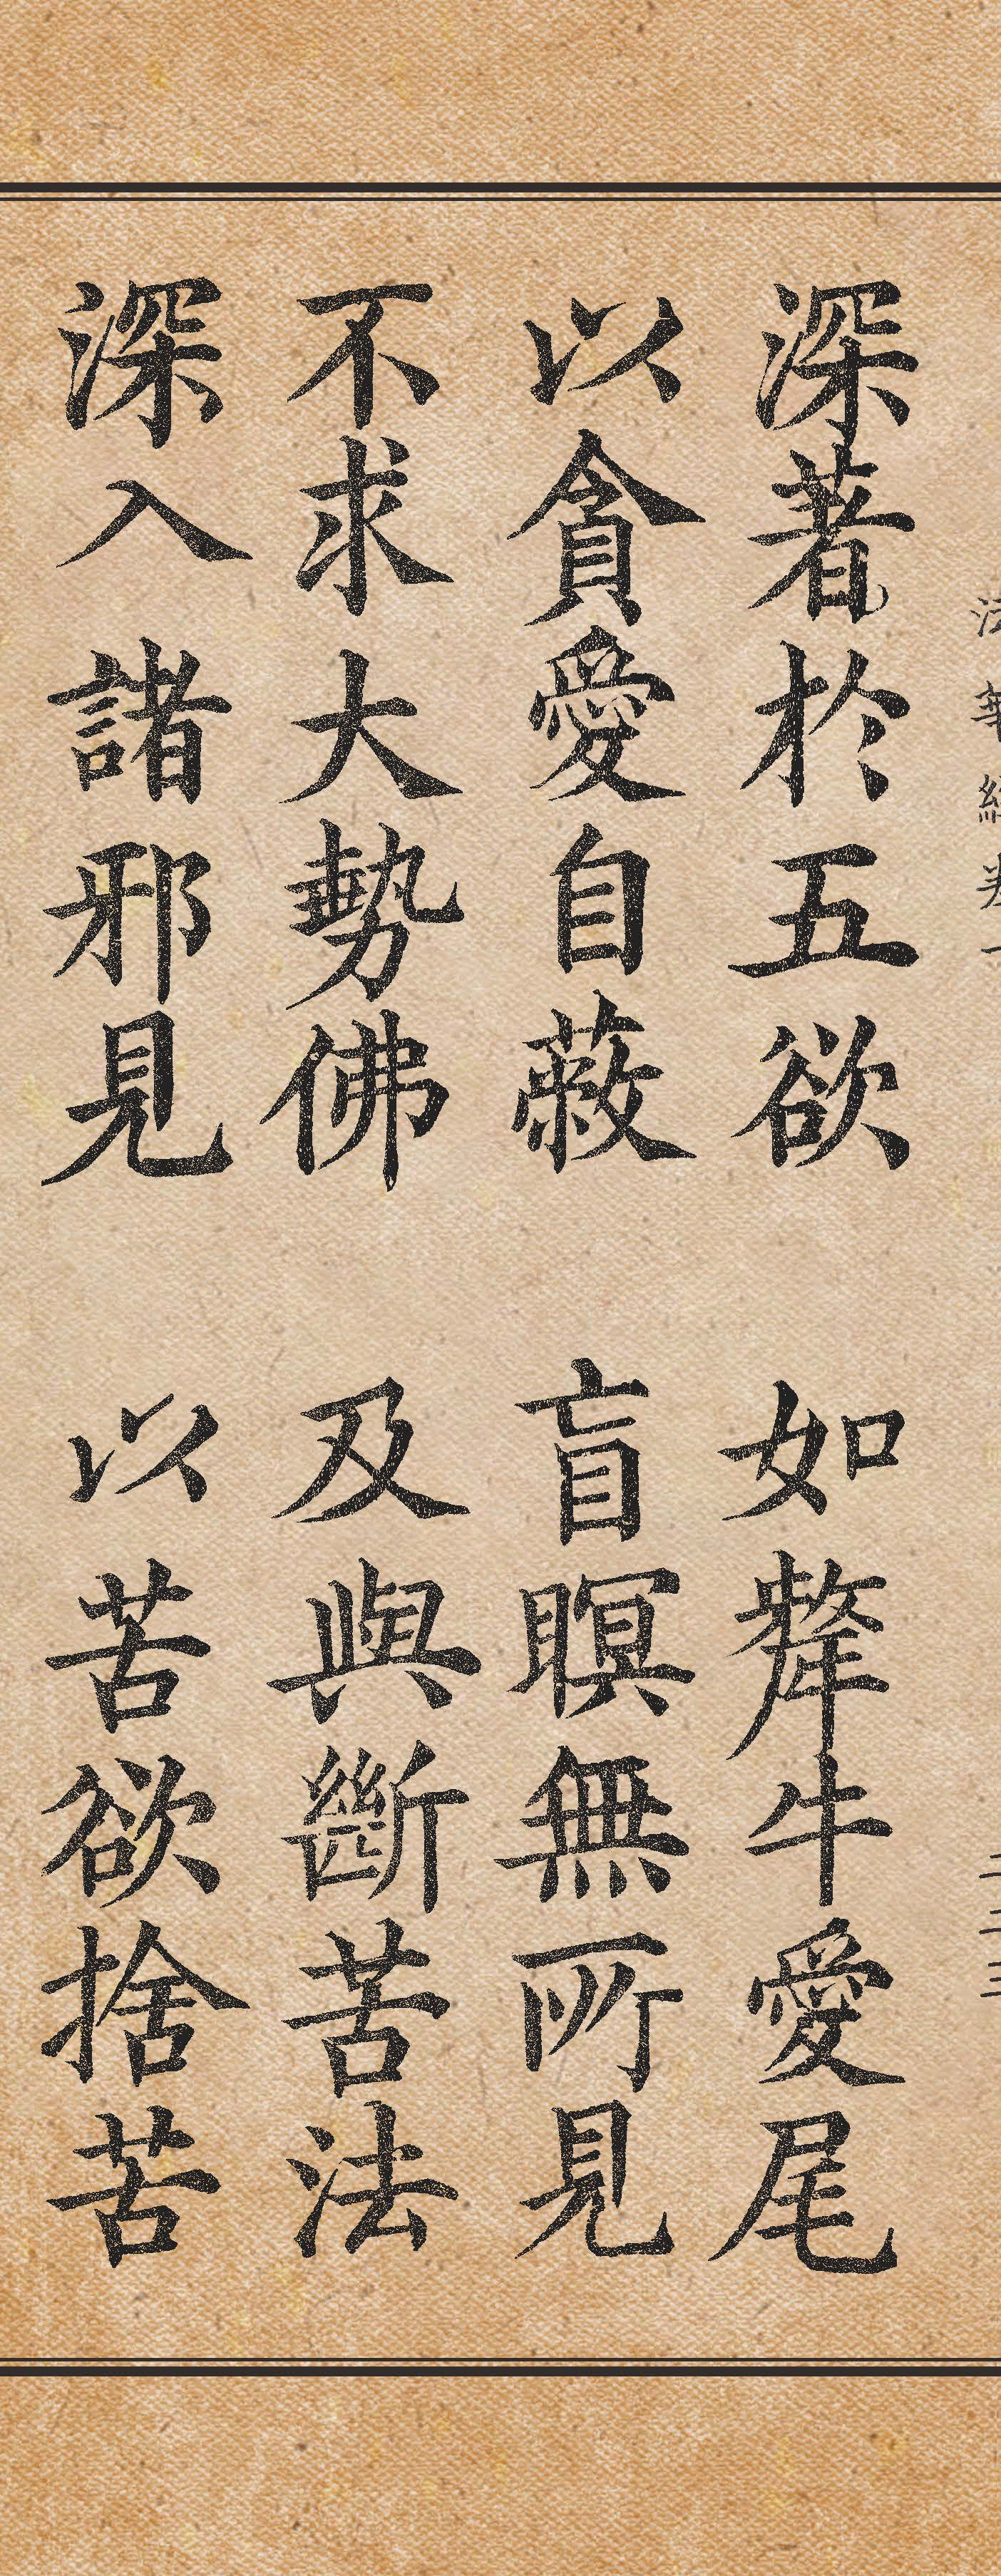 法華經卷一 二二三
深著於五欲 如犛牛愛尾
以貪愛自蔽 盲瞑無所見
不求大勢佛 及與斷苦法
深入諸邪見 以苦欲捨苦